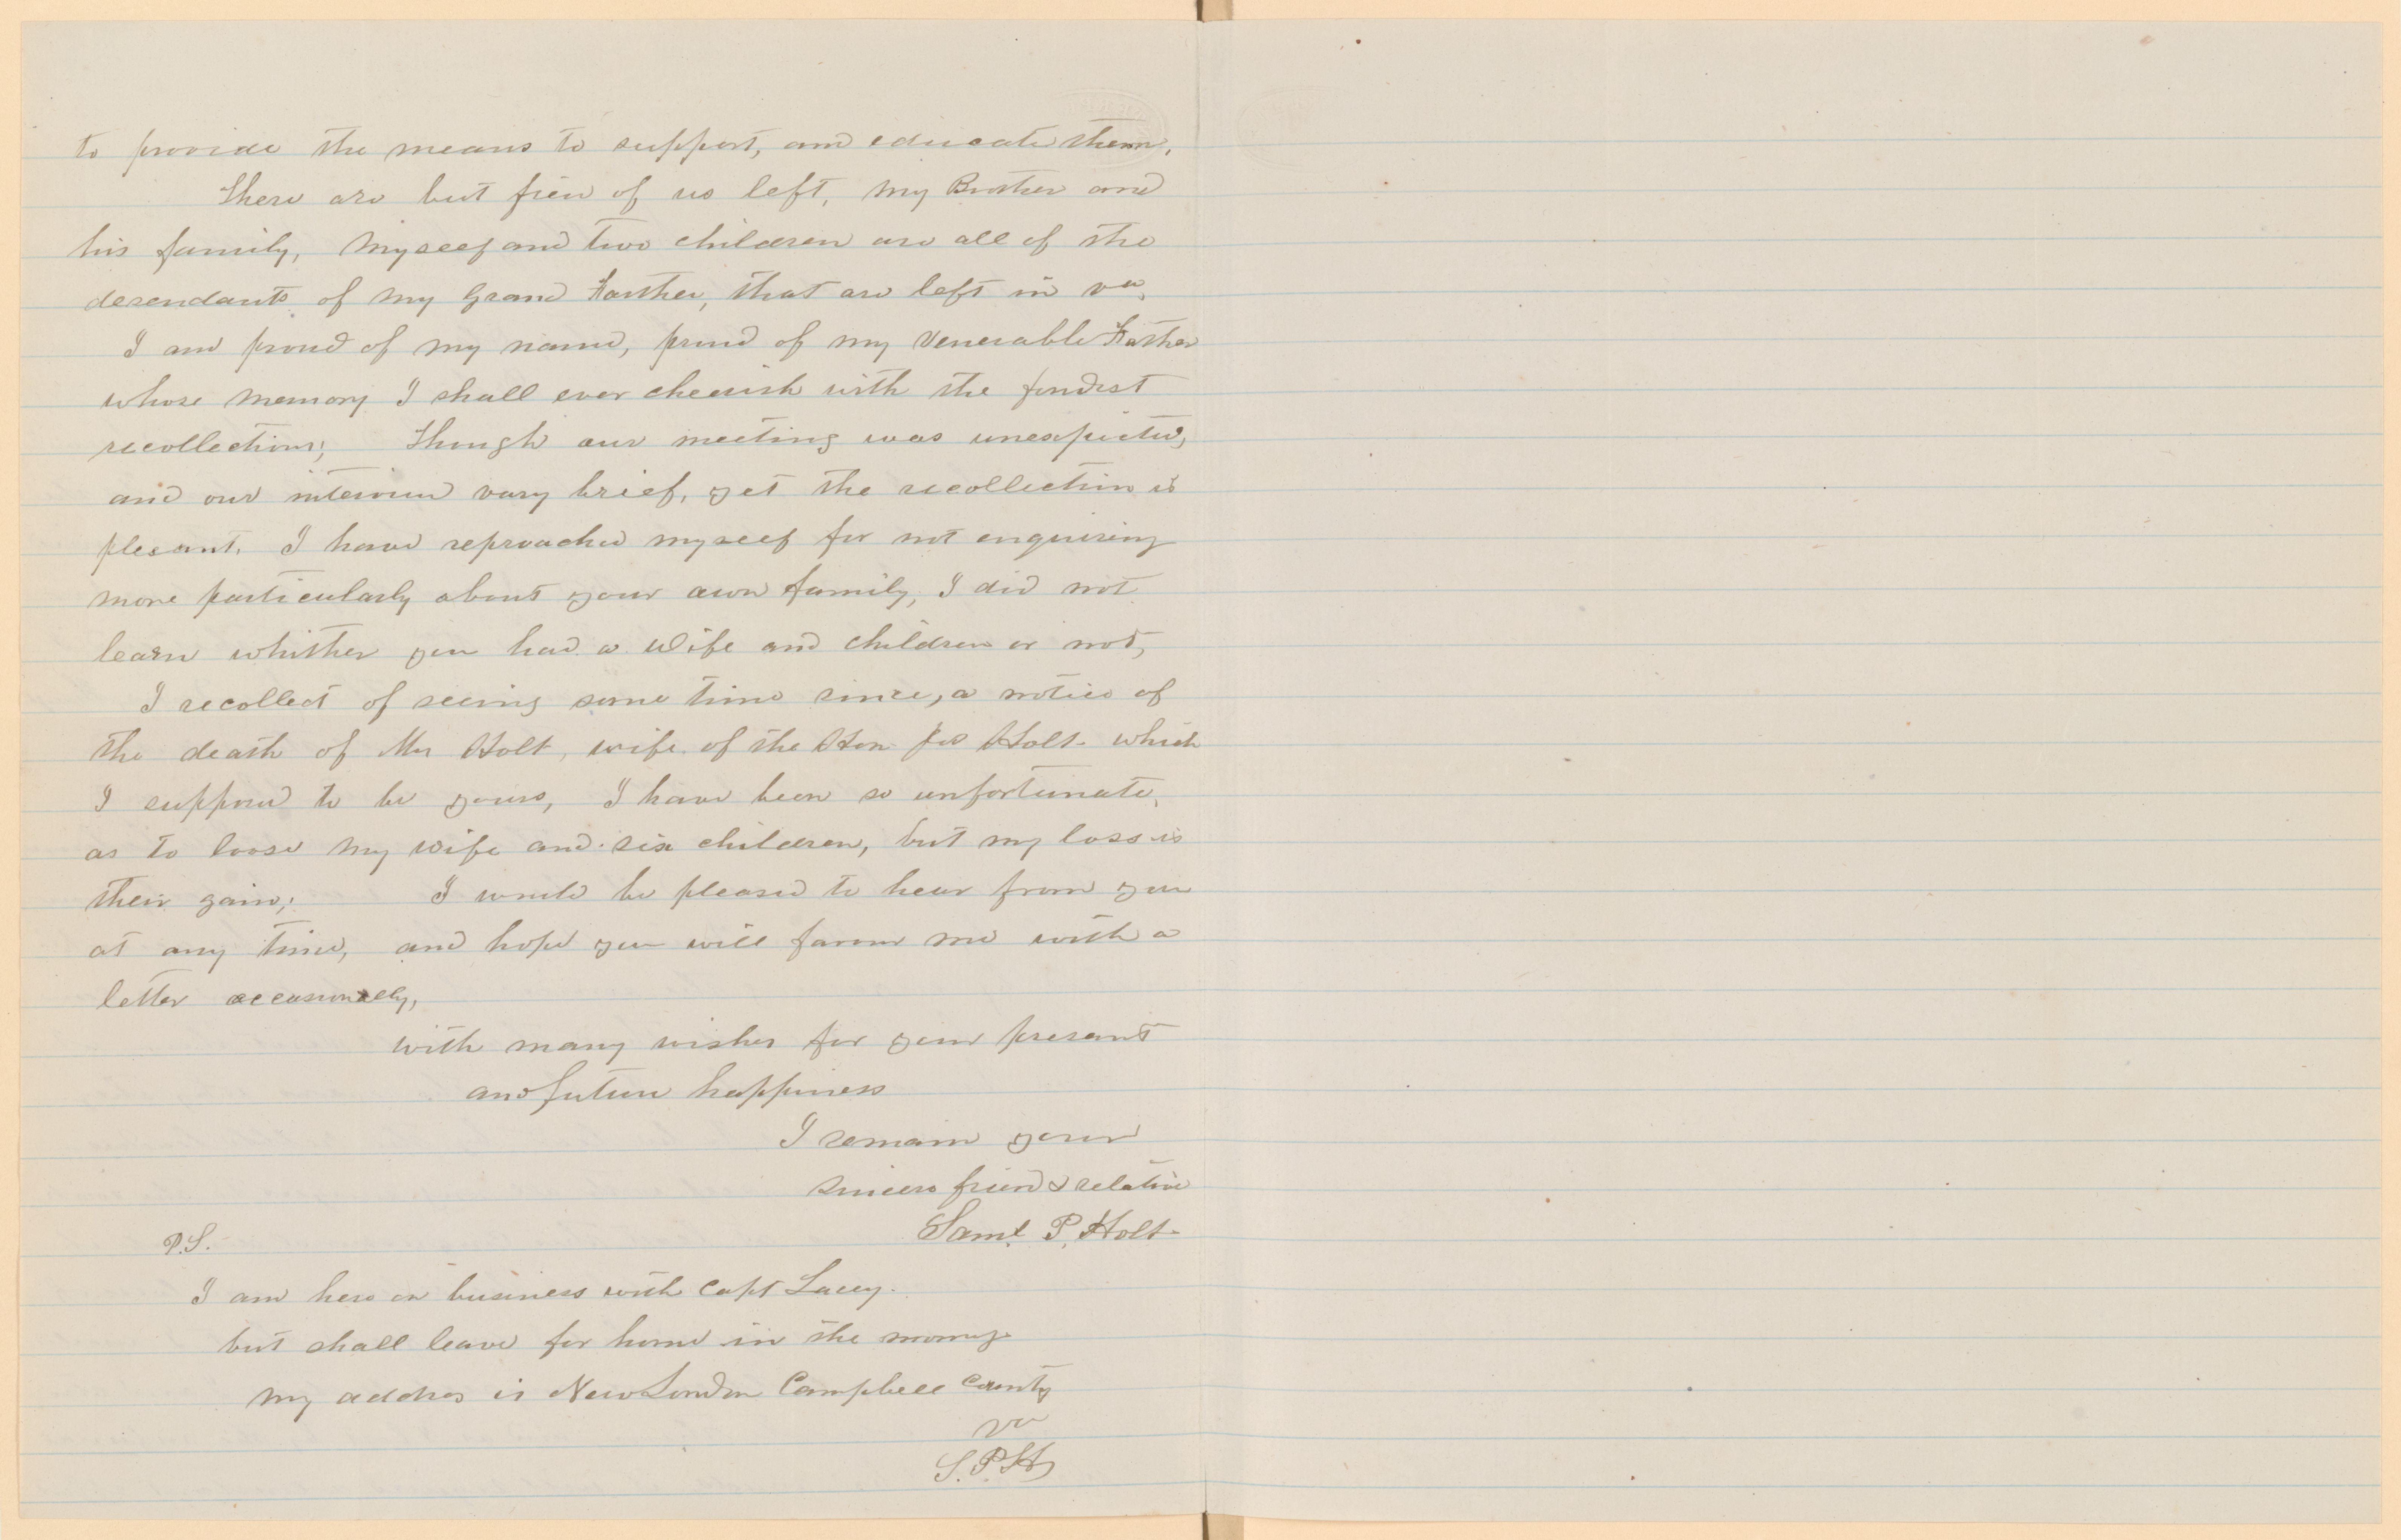 to provide the means to support, and educate them,
There are but fiew of us left, My Brother and
his family, Myself and two children are all of the
desendants of my Grand Farther, that are left in va,
I am proud of my name, proud of my Venerable Father
whose memory I shall ever cherish with the fondest
recollections; Though our meeting was unexpected,
and our interview very brief, yet the recollection is
plesant. I have reproached myself for not enquiring
more particularly about your own family, I did not
learn whither you had a Wife and children or not,
I recollect of seeing some time since, a notice of
the death of Mrs Holt, wife of the Hon Jos Holt which
I supposed to be yours, I have been so unfortunate,
as to loose my wife and six children, but my loss is
their gain; I would be pleased to hear from you
at any time, and hope you will favour me with a
letter occasionally,
with many wishes for your presant
and future happiness
I remain your
sincere friend & relative
Saml P. Holt
P.S.
I am here on business with Capt Lacey.
but shall leave for home in the morning
My address is New London Campbell County
va
S.P.H